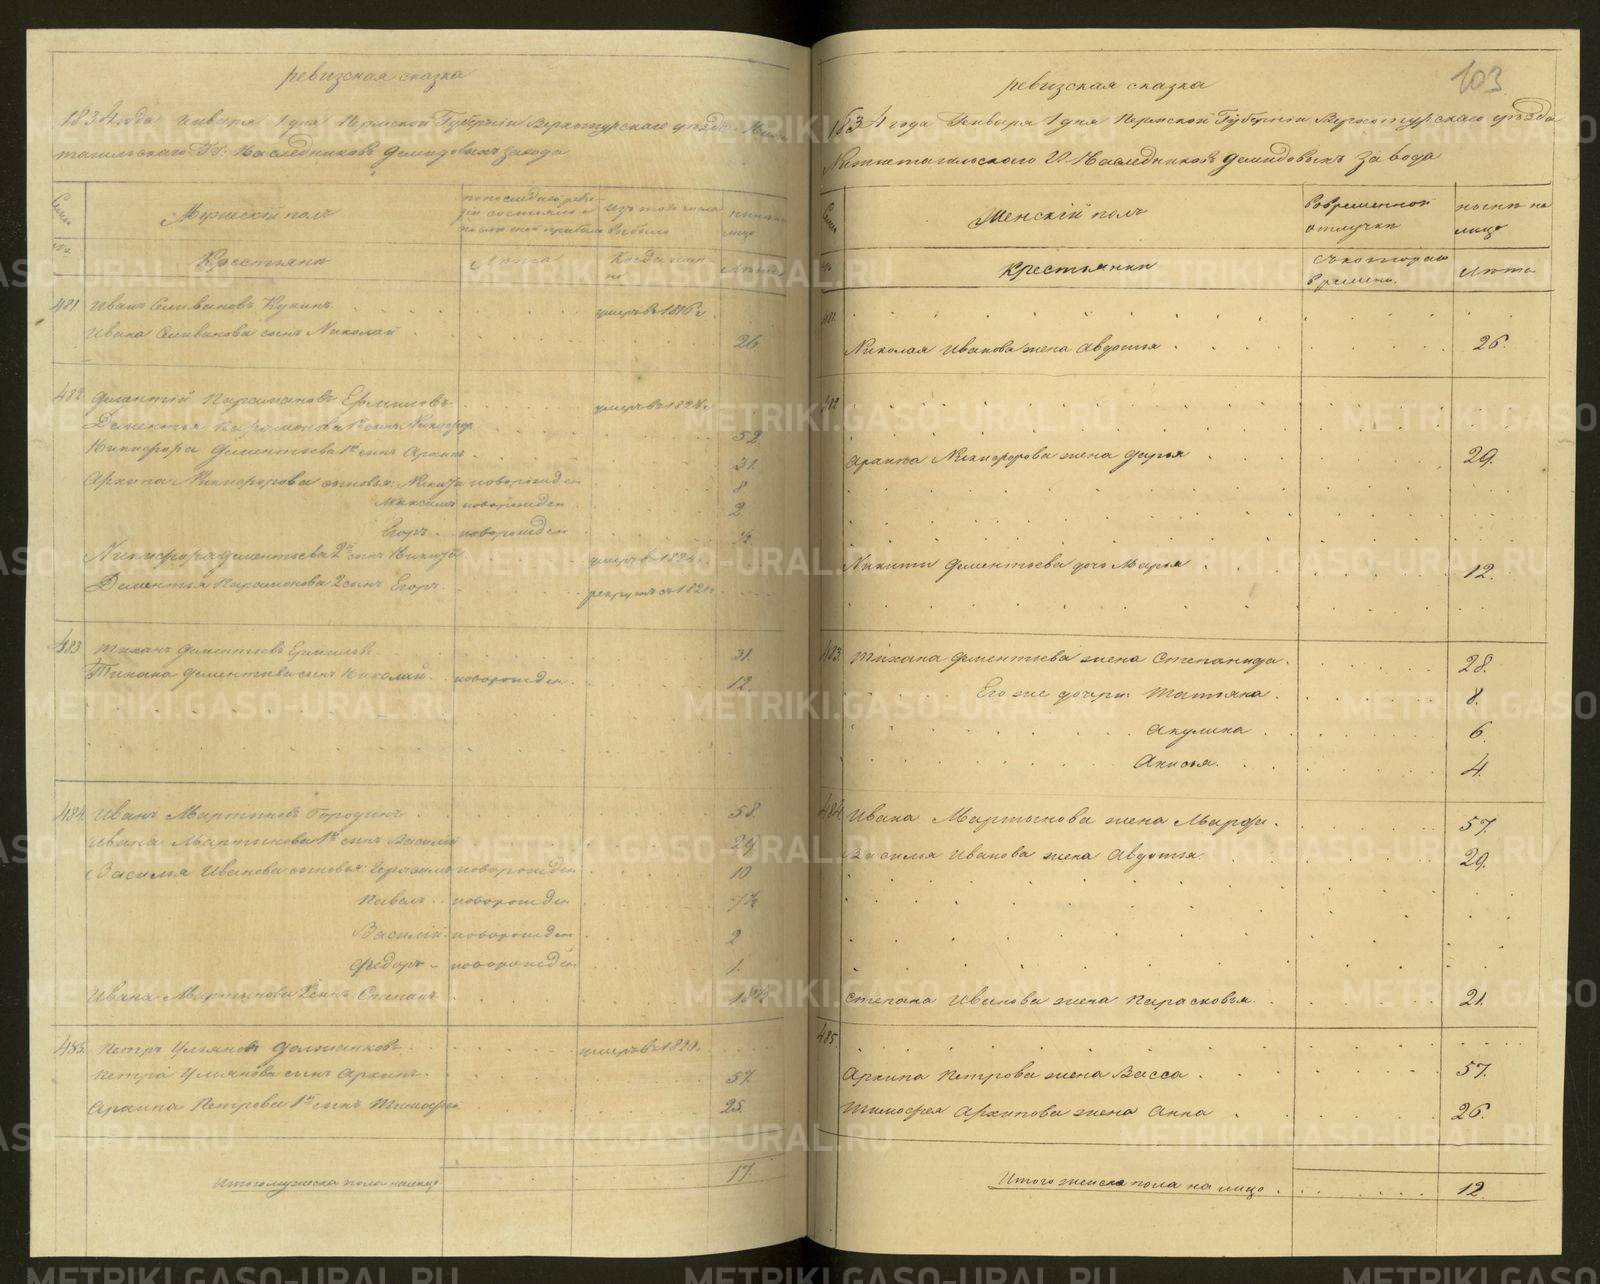 ревизская сказка
1834 года Января 1 дня Пермской Губернiи Верхотурскаго уѣзда
тагильскаго Гг. Наследниковъ Демидовыхъ завода
Мужескiй полъ
Крестьяне
Лѣта
481. Иванъ Селивановъ Кукинъ
Ивана Селиванова сынъ Николай 26
482. Дементiй Парамоновъ Ермиловъ
Дементья Парамонова 1й сынъ Никифоръ 52
Никифора Дементьева 1й сынъ Архипъ 31.
Архипа Никифорова сыновья: Никита новорожден 8
Максимъ новорожден 2
Егоръ новорожден ½
Никифора Дементьева 2й сынъ Никита умеръ въ 1824
Дементья Парамонова 2 сынъ Егоръ рекрутъ съ 1821
483 Тиханъ Дементьевъ Ермиловъ 31.
Тихана Дементьева сынъ Николай новорожден 12
484. Иванъ Мартыновъ Бородинъ 58.
Ивана Мартынова 1й сынъ Василiй 29
Василья Иванова сыновья: Герасимъ новорожден 10
Павелъ новорожден
Василiй новорожден 2
Федоръ новорожден 1.
Ивана Мартынова 2 сынъ Степанъ
485. Петръ Ульяновъ Должниковъ умеръ въ 1820.
Петра Ульянова сынъ Архипъ 57.
Архипа Петрова 1й сынъ Тимофей 25.
Итого мужеска пола на лицо 17.
103
ревизская сказка
1834 года Января 1 дня Пермской Губернiи Верхотурскаго уѣзда
Нижнетагильскаго Гг Наследниковъ Демидовыхъ завода
Женскiй полъ
во временной отлучки
ныне на лицо
Крестьянки
съ котораго времени.
Лѣта
481.
Николая Иванова жена Авдотья 26.
482
Архипа Никифорова жена Дарья 29.
Никиты Дементьева дочь Марья 12.
483. Тихана Дементьева жена Степанида 28.
Его же дочери: Татьяна 8.
Акулина 6
Анисья 4.
484 Ивана Мартынова жена Марфа 57.
Василья Иванова жена Авдотья 29.
Степана Иванова жена Парасковья 21.
485.
Архипа Петрова жена Васса 57.
Тимофея Архипова жена Анна 26.
Итого женска пола на лицо 12
METRIKI.GASO-URAL.RU